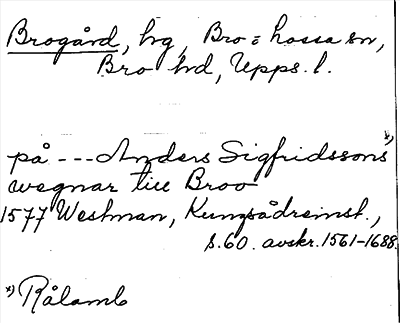 Brogård, hg, Bro = hossa sn,
Bro hd, Upps. l.
på --- Anders Sigfridssons x)
wegnar till Broo
1577 Westman, Kungsådreinst.,
s. 60. avskr. 1561-1688.
x) Rålamb